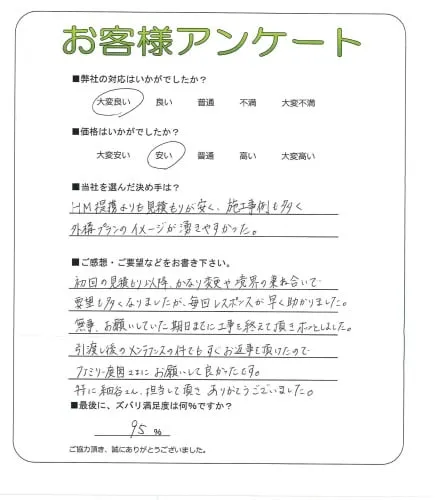 お客様アンケート
■弊社の対応はいかがでしたか？
大変良い　良い　普通　不満　大変不満
■価格はいかがでしたか？
大変安い　安い　普通　高い　大変高い
■当社を選んだ決め手は？
HM提携よりも見積もりが安く、施工事例も多く
外構プランのイメージが湧きやすかった。
■ご感想・ご要望などをお書き下さい。
初回の見積もり以降、かなり変更や境界の兼ね合いで
要望も多くなりましたが、毎回レスポンスが早く助かりました。
無事、お願いしていた期日までに工事を終えて頂きホッとしました。
引渡し後のメンテナンスの件でもすぐお返事を頂けたので
ファミリー庭園さまにお願いして良かったです。
特に細谷さん、担当して頂きありがとうございました。
■最後に、ズバリ満足度は何％ですか？
95 %
ご協力頂き、誠にありがとうございました。